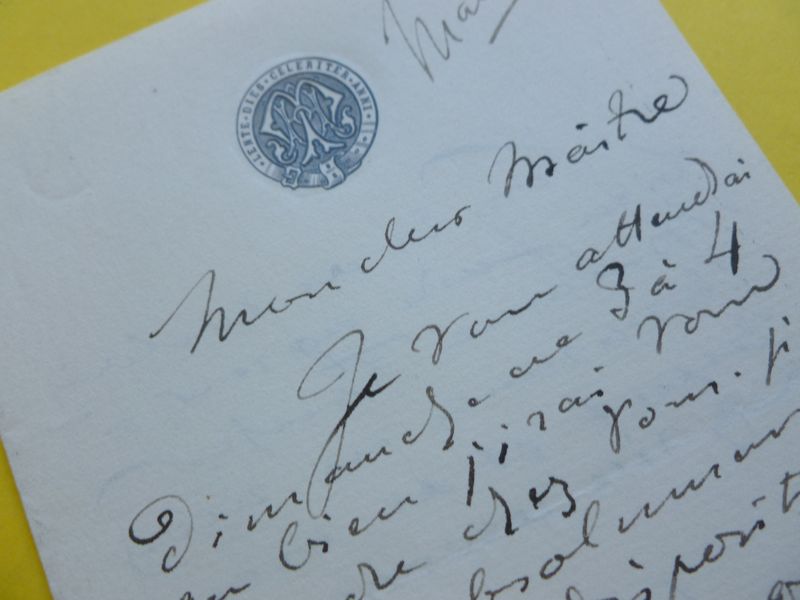 Mar
LENTE · DIES · CELERITER · ANNI
Mon cher Maître
Je vous attendrai
dimanche de 3 à 4
ou bien j'irai vous
dre chez vous. Si
bsolumen
disposit